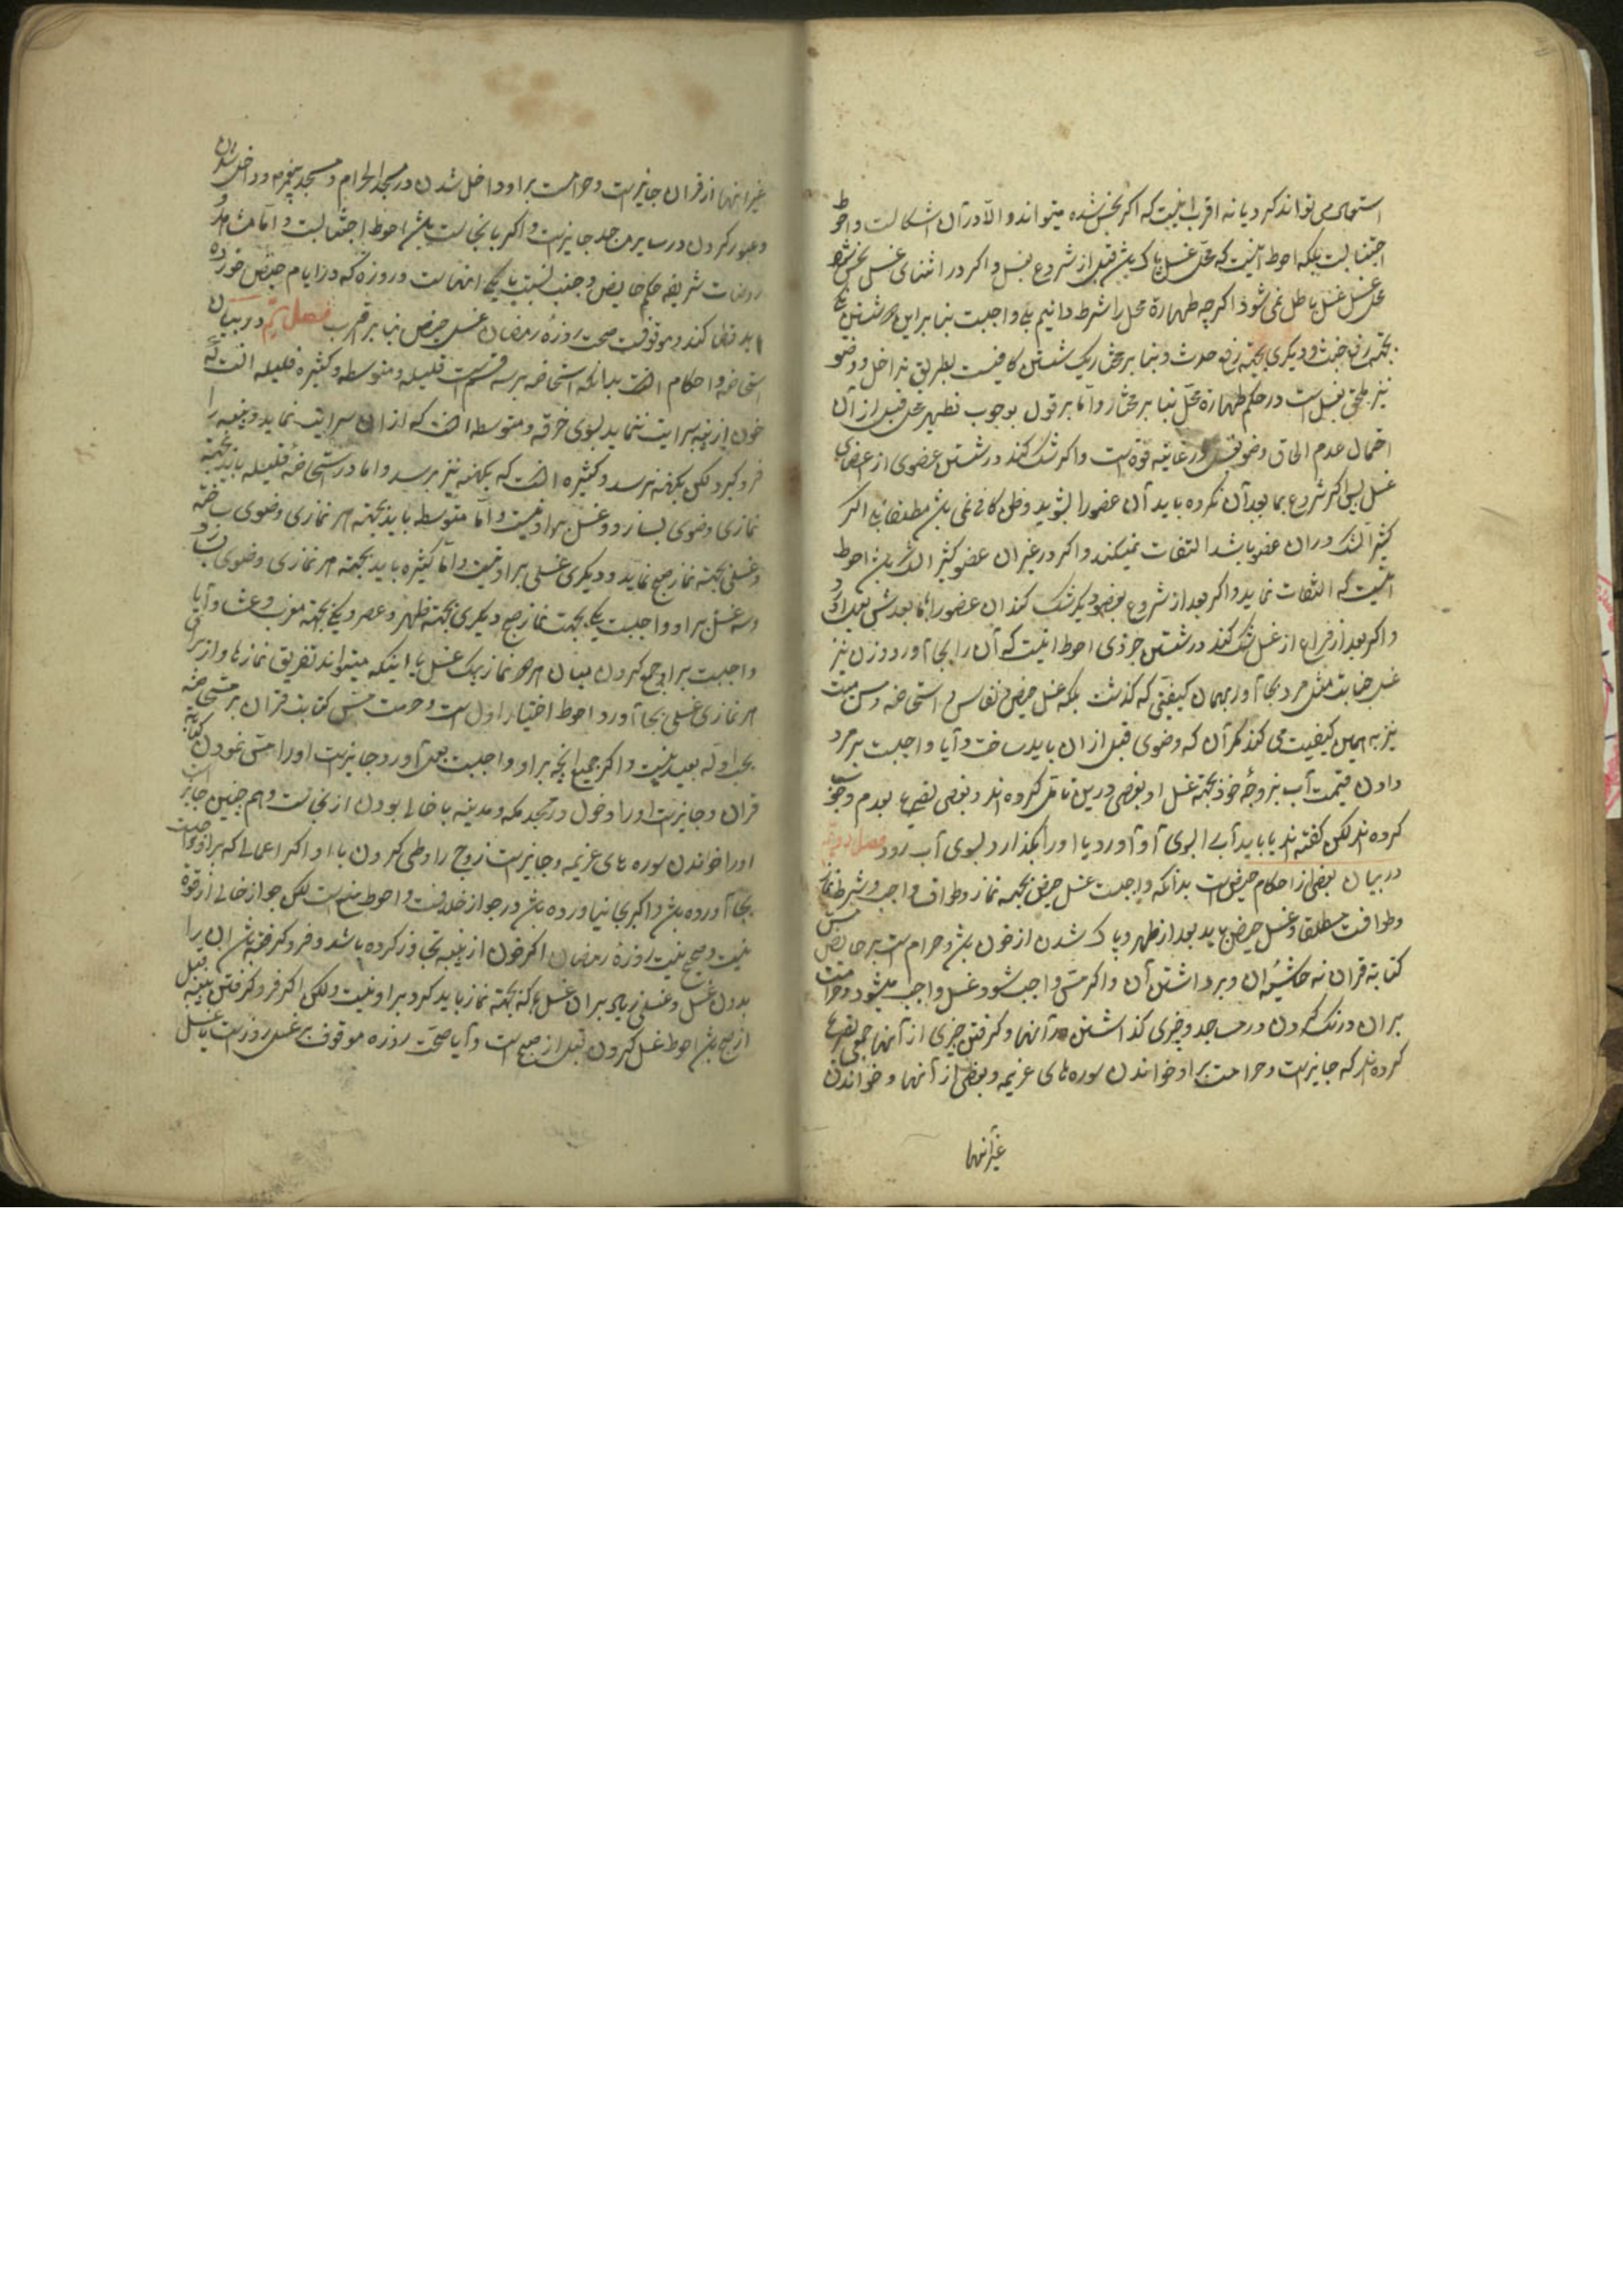 استعمال می تواند کرد یا نه اقرب اینست که اگر نجس نشده میتواند و الّا در آن اشکالست و احوط
اجتنابست بلکه احوط اینست که محلّ غسل پاک باشد قبل از شروع بغسل و اگر در اثنای غسل نجس شود
محل غسل غسل باطل نمی شود اگر چه طهارة محل را شرط دانیم بلی واجبست بنا براین دو شستن یکی
بجهة رفع خبث و دیگری بجهة رفع حدث و بنا بر مختار یک شستن کافیست بطریق تداخل و وضو
نیز ملحق بغسل است در حکم طهارة محلّ بنا بر مختار و امّا بر قول بوجوب تطهیر محل قبل از آن
احتمال عدم الحاق وضو در غایة قوة است و اگر شک کند در شستن عضوی از اعضای
غسل پس اگر شروع بما بعد آن نکرده باید آن عضو را بشوید و ظن کافی نمی باشد مطلقا اگر
کثیر الشک در ان عضو باشد التفات نمیکند و اگر در غیر ان عضو کثیر الشک باشد احوط
انست که التفات نماید و اگر بعد از شروع بعضو دیگر شک کند ان عضو را با ما بعدش بعد از
و اگر بعد از فراغ از غسل شک کند در شستن جزوی احوط اینست که آن را بجا آورد و زن نیز
غسل جنابت مثل مرد بجا آورد بهمان کیفیتی که گذشت بلکه غسل حیض و نفاس و استحاضه و مس میت
نیز به همین کیفیت می کند مگر آن که وضوی قبل از ان باید ساخت و آیا واجبست بر مرد
دادن قیمت آب بزوجهٔ خود بجهة غسل او بعضی درین تامّل کرده اند و بعضی تصریح بعدم وجوب
کرده اند لکن گفته اند یا باید آب را بسوی او آورد یا او را بگذارد بسوی آب رود فصل دویّم
در بیان بعضی از احکام حیض است بدانکه واجبست غسل حیض بجهة نماز و طواف واجب و شرط نماز
و طوافست مطلقا و غسل حیض باید بعد از طهر و پاک شدن از خون باشد و حرام است بر حایض مسّ
کتابة قران نه حاشیهٔ ان و برداشتن آن و اگر مسّ واجب شود غسل واجب میشود و حرامست
بر ان درنگ کردن در مساجد و چیزی گذاشتن در آنها و گرفتن چیزی از آنها جمعی تصریح
کرده اند که جایز است و حرامست بر او خواندن سوره های عزیمه و بعضی از آنها و خواندن
غیر آنها
غیر اینها از قران جایز است و حرامست بر او داخل شدن در مسجد الحرام و مسجد پیغمبر و داخل شدن
و عبور کردن در سایر مساجد جایز است و اگر با نجاست باشد احوط اجتنابست و امّا مشاهد و
روضات شریفه حکم حایض و جنب نسبت بانها یکیست و روزهٔ که در ایام حیض خورده
باید قضا کند و موقوفست صحت روزهٔ رمضان بر غسل حیض بنا بر اقرب فصل سیّم در بیان
استحاضه و احکام انست بدانکه استحاضه بر سه قسم است قلیله و متوسطه و کثیره قلیله انست که
خون از پنبه سرایت ننماید بسوی خرقه و متوسطه انست که از ان سرایت نماید و پنبه را
فرو گیرد لکن بکهنه نرسد و کثیره انست که بکهنه نیز برسد و اما در استحاضهٔ قلیله باید بجهة
نمازی وضوی بسازد و غسل بر او نیست و امّا متوسطه باید بجهة هر نمازی وضوی ساخته
و غسلی بجهة نماز صبح نماید و دیگری غسلی بر او نیست و امّا کثیره باید بجهة هر نمازی وضوی بسازد
و سه غسل بر او واجبست یکی بجهت نماز صبح و دیگری بجهة ظهر و عصر و یکی بجهة مغرب و عشا و آیا
واجبست بر او جمع کردن میان هر دو نماز بیک غسل یا اینکه میتواند تفریق نماز ها و از برای
هر نمازی غسلی بجا آورد احوط اختیار اول است و حرمت مسّ کتابت قران بر مستحاضه
بحدث او بعید نیست و اگر جمیع آنچه بر او واجبست بعمل آورد جایز است او را مسّ نمودن کتابة
قران و جایز است او را دخول در مسجد مکه و مدینه با خالی بودن از نجاست و هم چنین جایز است
او را خواندن سوره های عزیمه و جایز است زوج را وطی کردن با او اگر اعمالی که بر او واجبست
بجا آورده باشد و اگر بجا نیاورده باشد در جواز خلافست و احوط منع است لکن جواز خالی از قوة
نیست و صحیح نیست روزهٔ رمضان اگر خون از پنبه تجاوز کرده باشد و فرو گرفته باشد ان را
بدون غسل و غسلی زیاد بر ان غسلها که بجهة نماز باید کرد بر او نیست و لکن اگر فرو گرفتن پنبه قبل
از صبح باشد احوط غسل کردن قبل از صبح است و آیا صحّت روزه موقوف بر غسل روز است یا غسل